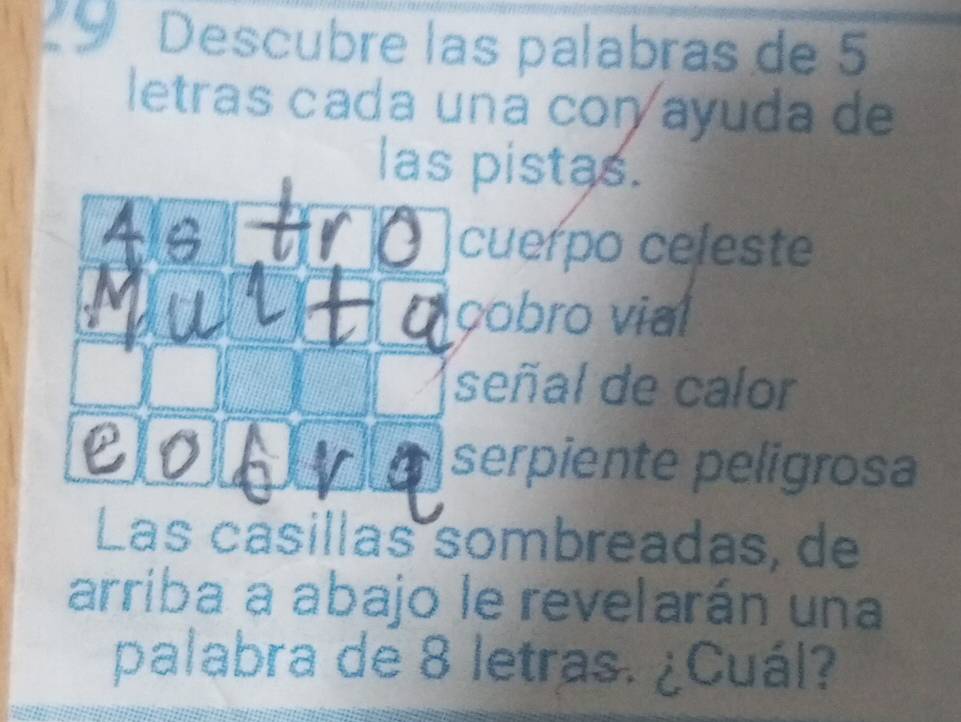 29 Descubre las palabras de 5
letras cada una con ayuda de
las pistas.
Astro cuerpo celeste
Multa cobro vial
señal de calor
eobra serpiente peligrosa
Las casillas sombreadas, de
arriba a abajo le revelarán una
palabra de 8 letras. ¿Cuál?